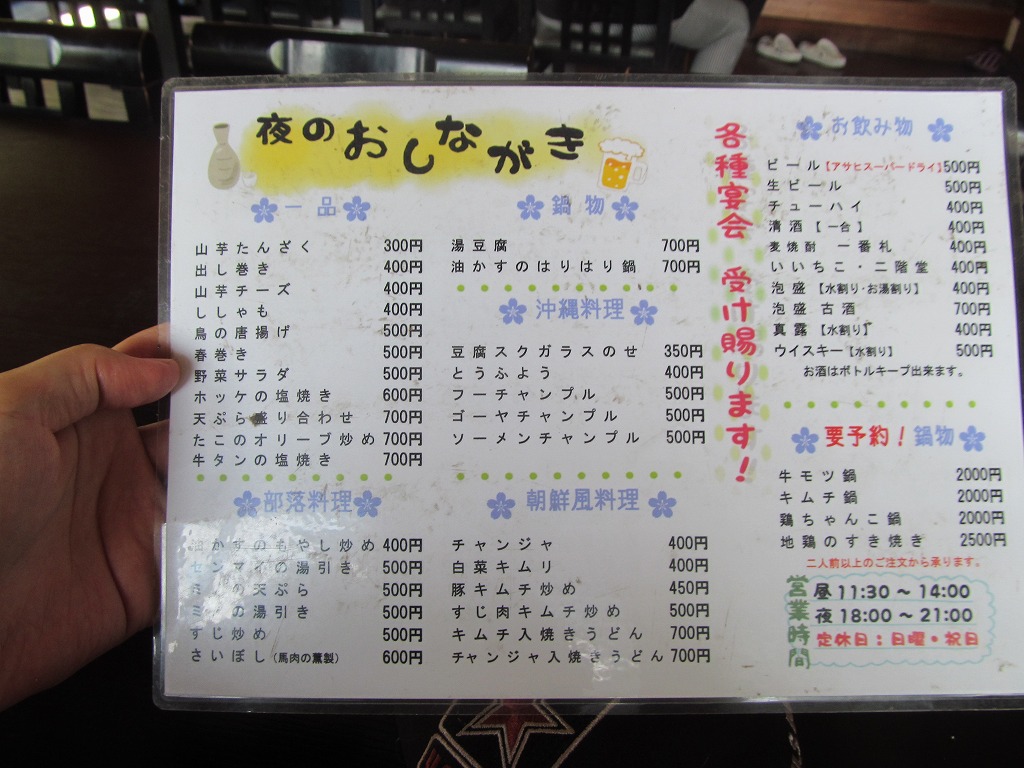 夜のおしながき
一品
山芋たんざく 300円
出し巻き 400円
山芋チーズ 400円
ししゃも 400円
鳥の唐揚げ 500円
春巻き 500円
野菜サラダ 500円
ホッケの塩焼き 600円
天ぷら盛り合わせ 700円
たこのオリーブ炒め 700円
牛タンの塩焼き 700円
部落料理
油かすのもやし炒め 400円
センマイの湯引き 500円
ミノの天ぷら 500円
ミノの湯引き 500円
すじ炒め 500円
さいぼし(馬肉の薫製) 600円
鍋物
湯豆腐 700円
油かすのはりはり鍋 700円
沖縄料理
豆腐スクガラスのせ 350円
とうふよう 400円
フーチャンプル 500円
ゴーヤチャンプル 500円
ソーメンチャンプル 500円
朝鮮風料理
チャンジャ 400円
白菜キムリ 400円
豚キムチ炒め 450円
すじ肉キムチ炒め 500円
キムチ入焼きうどん 700円
チャンジャ入焼きうどん 700円
各種宴会 受け賜ります!
お飲み物
ビール【アサヒスーパードライ】500円
生ビール 500円
チューハイ 400円
清酒【一合】 400円
麦焼酎 一番札 400円
いいちこ・二階堂 400円
泡盛【水割り・お湯割り】 400円
泡盛 古酒 700円
真露【水割り】 400円
ウイスキー【水割り】 500円
お酒はボトルキープ出来ます。
要予約!鍋物
牛モツ鍋 2000円
キムチ鍋 2000円
鶏ちゃんこ鍋 2000円
地鶏のすき焼き 2500円
二人前以上のご注文から承ります。
営業時間
昼 11:30 〜 14:00
夜 18:00 〜 21:00
定休日:日曜・祝日